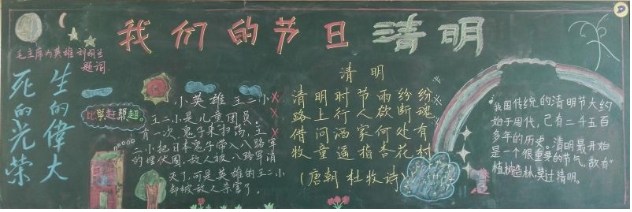 我们的节日清明
毛主席为英雄刘胡兰
题词
生的偉大
死的光荣
比学赶帮超
小英雄王二小
王二小是儿童团员,
有一次鬼子来扫荡,王
二小把日本鬼子带入八路军
的埋伏圈,敌人被八路军消
灭了,可是英雄的王二小
却被敌人杀害了。
清明
清明时节雨纷纷
路上行人欲断魂
借问酒家何处有
牧童遥指杏花村
(唐朝 杜牧诗)
我国传统的清明节大约
始于周代,已有二千五百
多年的历史。清明最开始
是一个很重要的节气,故有"
植树造林,莫过清明。